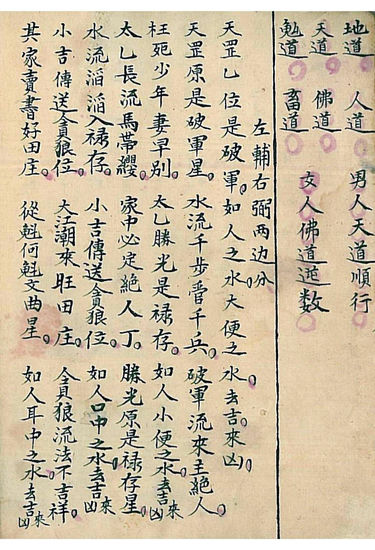 地道 人道 男人天道順行
天道 佛道 女人佛道逆数
勉道 畜道
左輔右弼两边分
天罡乚位是破軍。如人之水大便之水去吉。來凶。
天罡原是破軍星。水流千步晉千兵。破軍流來主絕人。
枉死少年妻早別。太乚勝光是禄存。如人小便之水去吉來凶
太乚長流馬帶纓。家中必定絕人丁。勝光原是禄存星。
水流滔滔入禄存。小吉傳送貪狼位。如人口中之水去吉來凶
小吉傳送貪狼位。大江潮來旺田庄。貪狼流法不吉祥。
其家賣書好田庄。從魁何魁文曲星。如人耳中之水去吉來凶